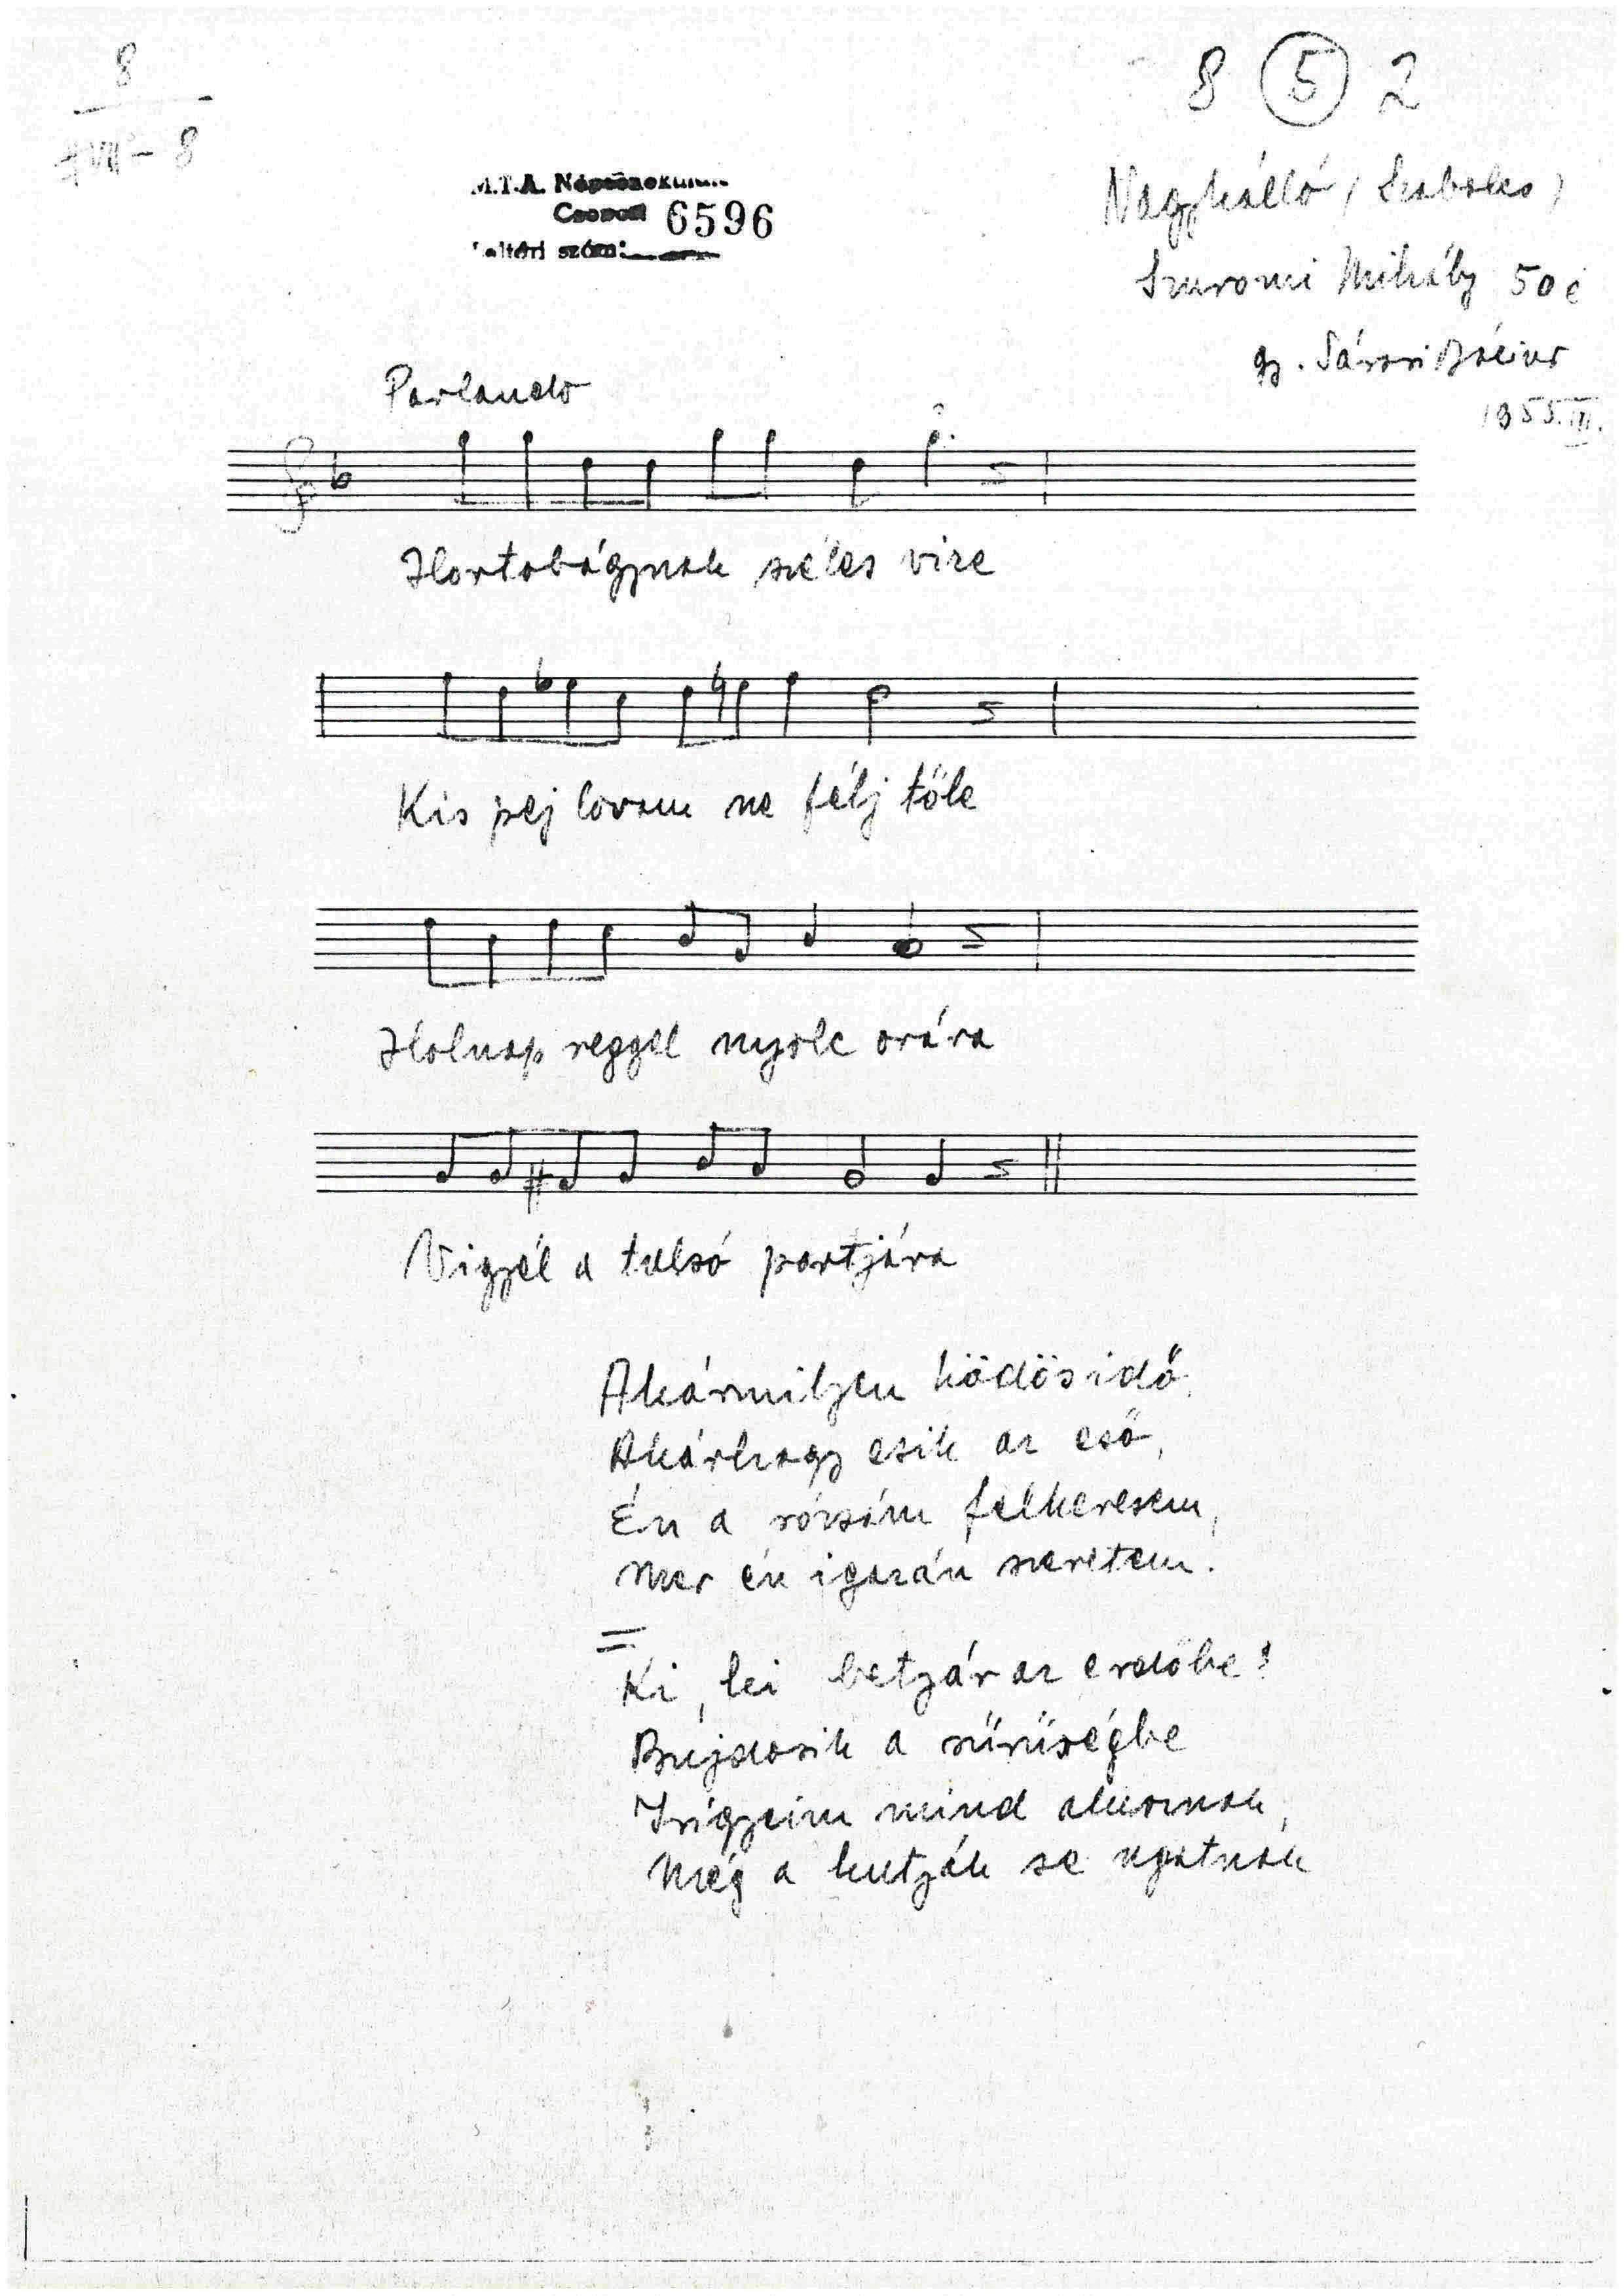 8
XVII - 8
8 5 2
M.T.A. Népzenekutató
Csoport 6596
leltári szám:
Nagykálló (Szabolcs)
Szuromi Mihály 50 é
gy. Sárosi Bálint
1955.III.
Parlando
Hortobágynak széles vize
Kis pej lovam ne félj tőle
Holnap reggel nyolc orára
Vigyél a tulsó partjára
Akármilyen ködös idő,
Akárhogy esik az eső,
Én a rózsám felkeresem,
Mer én igazán szeretem.
Ki, ki betyár az erdőbe!
Bujdosik a sűrűségbe
Irigyeim mind alusznak,
Még a kutyák se ugatnak